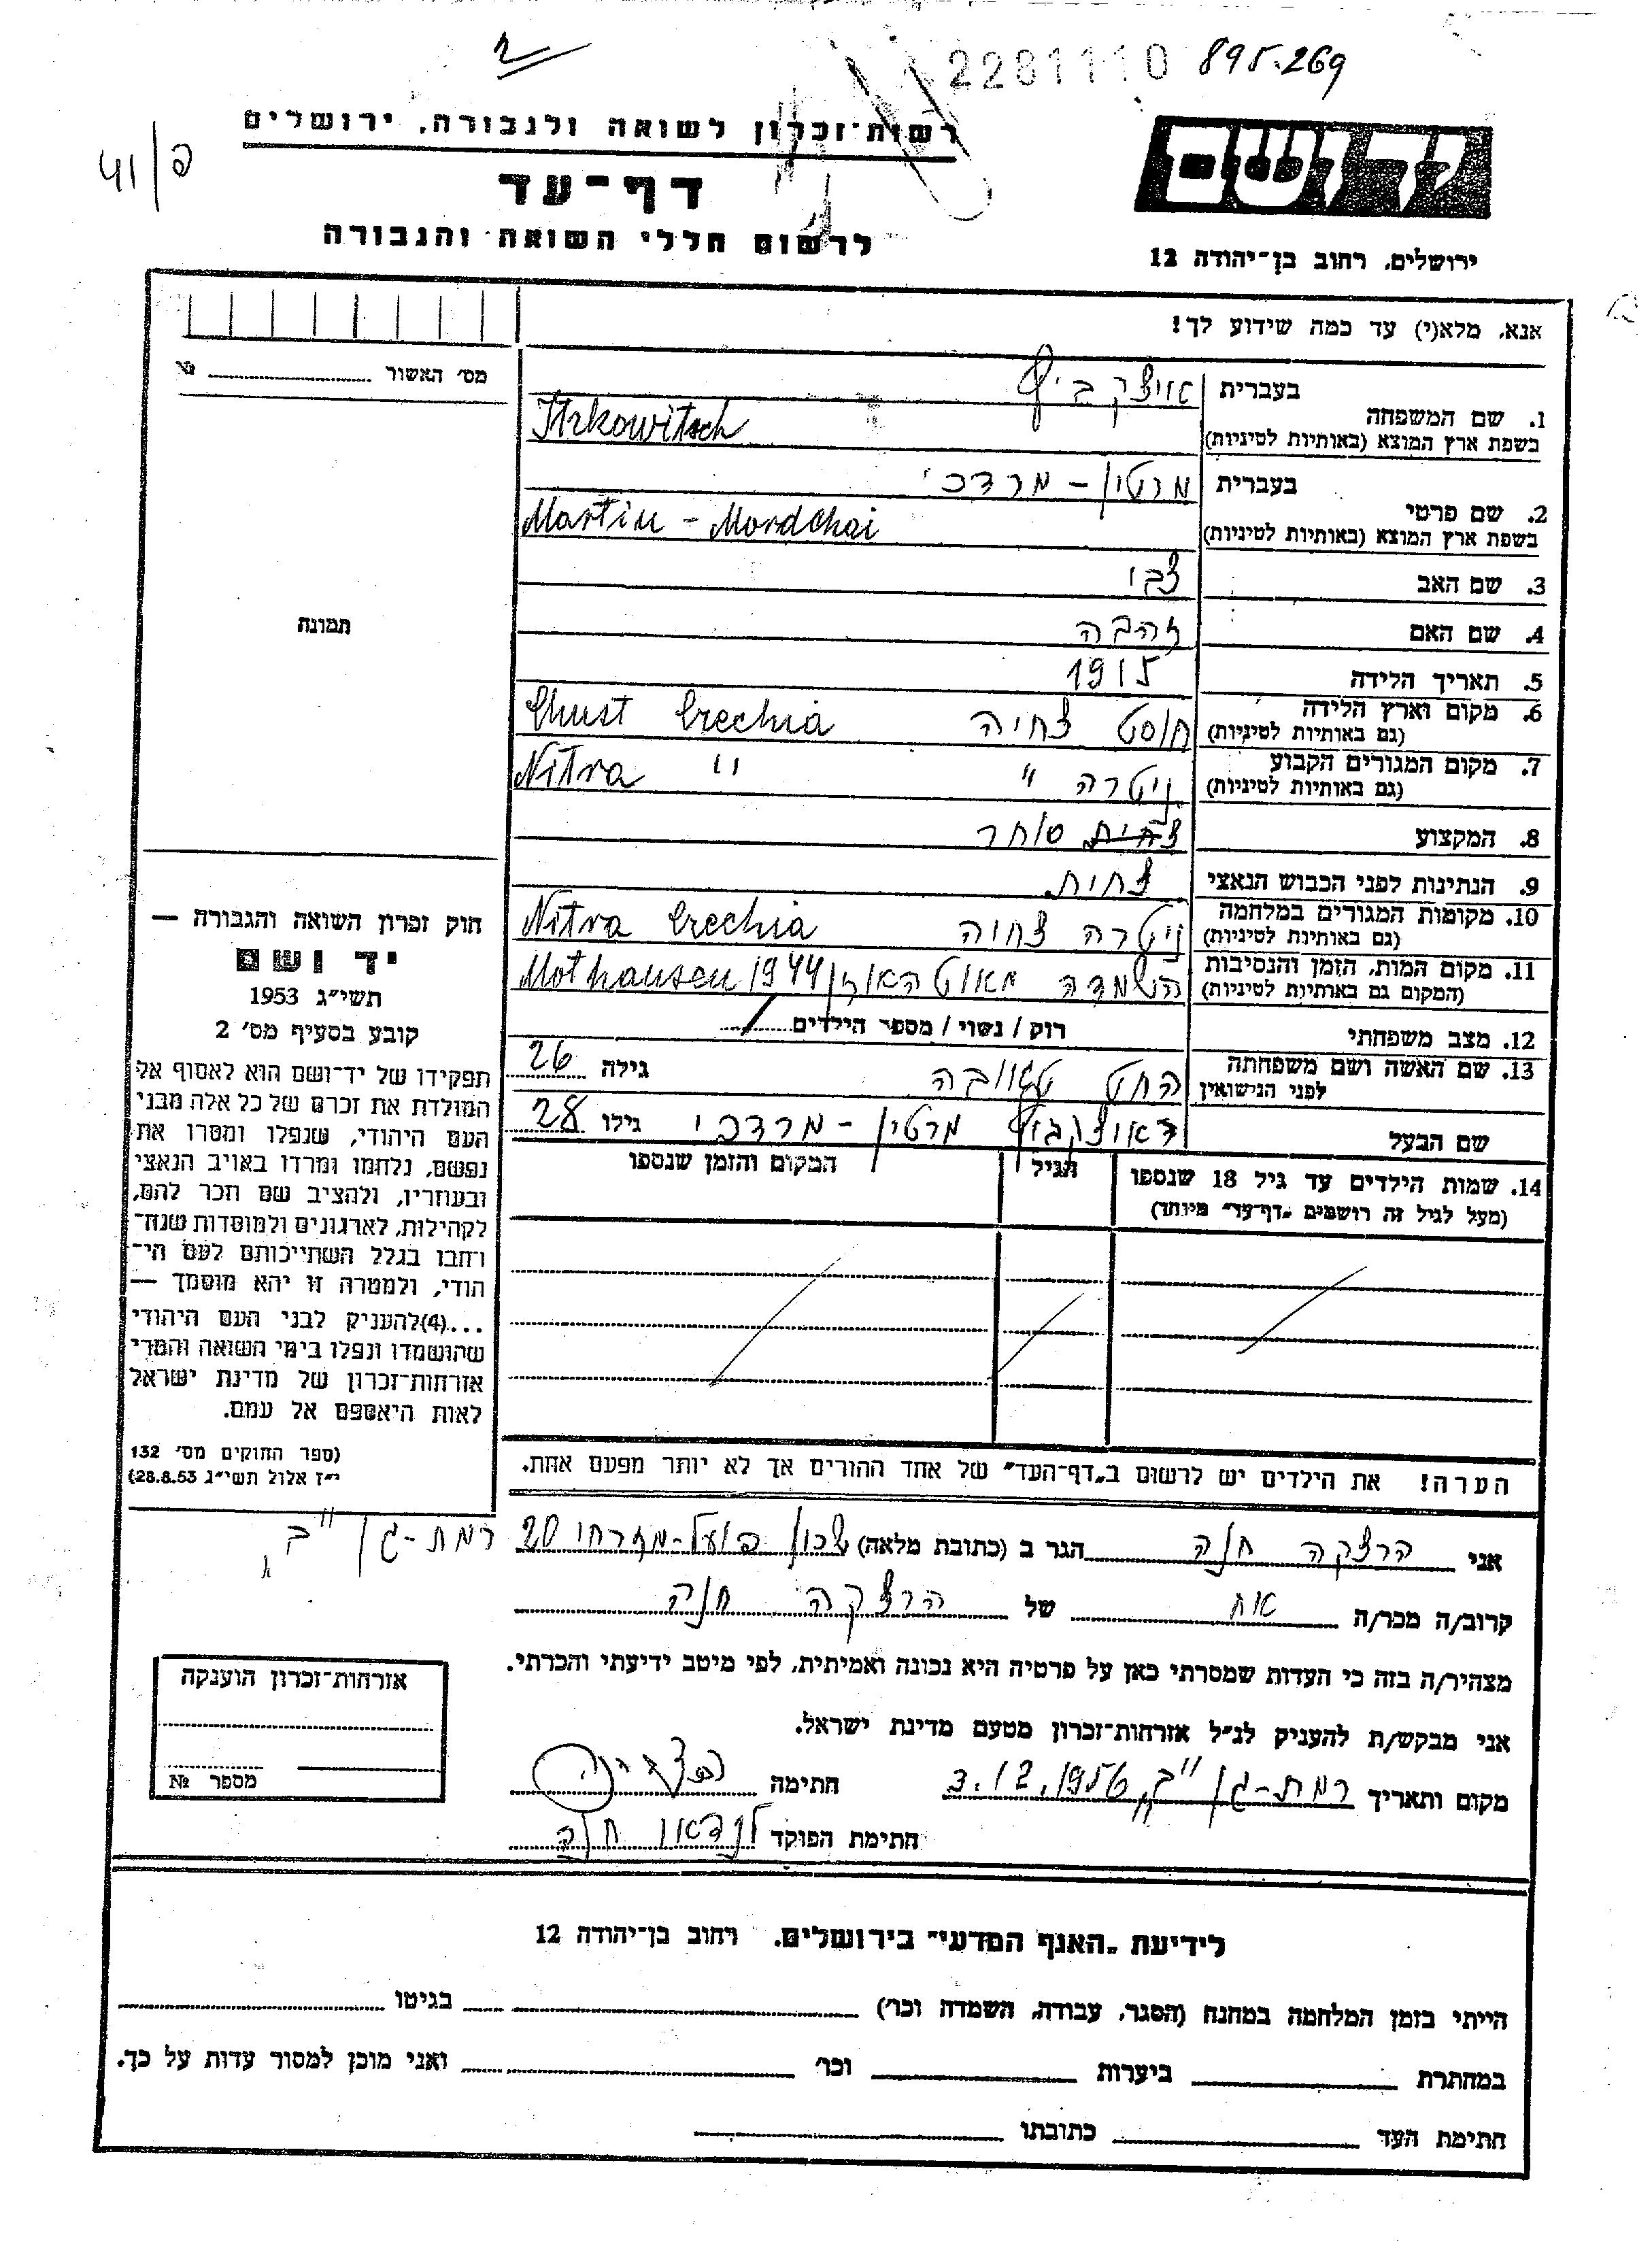 2281110 895.269
41/פ
רשות-זכרון לשואה ולגבורה, ירושלים
דף-עד
לרשום חללי השואה והגבורה
יד ושם
ירושלים, רחוב בן-יהודה 12
אנא, מלא(י) עד כמה שידוע לך!
מס' האשור № 
1. שם המשפחה בעברית איצקביץ
בשפת ארץ המוצא (באותיות לטיניות) Itzkowitsch
2. שם פרטי בעברית מרטין - מרדכי
בשפת ארץ המוצא (באותיות לטיניות) Martin - Mordchai
3. שם האב צבי
4. שם האם זהבה
5. תאריך הלידה 1915
6. מקום וארץ הלידה (גם באותיות לטיניות) חוסט צ'חיה Chust Czechia
7. מקום המגורים הקבוע (גם באותיות לטיניות) ניטרה " Nitra "
8. המקצוע סוחר
9. הנתינות לפני הכבוש הנאצי צחית
10. מקומות המגורים במלחמה (גם באותיות לטיניות) ניטרה צחיה Nitra Czechia
11. מקום המות, הזמן והנסיבות (המקום גם באותיות לטיניות) השמדה מאוטהאוזן 1944 Mothausen
12. מצב משפחתי רוק / נשוי / מספר הילדים
13. שם האשה ושם משפחתה לפני הנישואין גילה 26
שם הבעל מרטין - מרדכי גילו 28
14. שמות הילדים עד גיל 18 שנספו (מעל לגיל זה רושמים „דף-עד" מיוחד) הגיל המקום והזמן שנספו
הערה! את הילדים יש לרשום ב„דף-העד" של אחד ההורים אך לא יותר מפעם אחת.
תמונה
חוק זכרון השואה והגבורה —
יד ושם
תשי"ג 1953
קובע בסעיף מס' 2
תפקידו של יד-ושם הוא לאסוף אל
המולדת את זכרם של כל אלה מבני
העם היהודי, שנפלו ומסרו את
נפשם, נלחמו ומרדו באויב הנאצי
ובעוזריו, ולהציב שם וזכר להם,
לקהילות, לארגונים ולמוסדות שנח-
רבו בגלל השתייכותם לעם הי-
הודי, ולמטרה זו יהא מוסמך —
...(4)להעניק לבני העם היהודי
שהושמדו ונפלו בימי השואה והמרי
אזרחות-זכרון של מדינת ישראל
לאות היאספם אל עמם.
(ספר החוקים מס' 132
י"ז אלול תשי"ג 28.8.53)
אני הרצקה חנה הגר ב (כתובת מלאה) שכון פועל-מזרחי 20 רמת-גן ב"
קרוב/ה מכר/ה אח של הרצקה חנה
מצהיר/ה בזה כי העדות שמסרתי כאן על פרטיה היא נכונה ואמיתית, לפי מיטב ידיעתי והכרתי.
אני מבקש/ת להעניק לנ"ל אזרחות-זכרון מטעם מדינת ישראל.
מקום ותאריך רמת-גן ב" 3.12.1956 חתימה
חתימת הפוקד לנדאו חנה
אזרחות-זכרון הוענקה
מספר №
לידיעת „האגף המדעי" בירושלים. רחוב בן-יהודה 12
הייתי בזמן המלחמה במחנה (הסגר, עבודה, השמדה וכו') בגיטו
במחתרת ביערות וכו' ואני מוכן למסור עדות על כך.
חתימת העד כתובתו